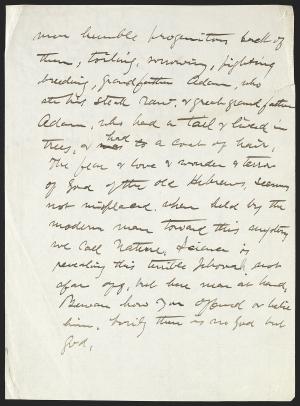 more humble progenitors back of
them, toiling, sorrowing, fighting
breeding, grandfather Adam, who
ate his steak raw, & great grandfather
Adam, who had a tail & lived in
trees, or had to a coat of hair.
The fear & love & wonder & terror
of God of the old Hebrews, seems
not misplaced when held by the
modern man toward this mystery
we call Nature. Science is
revealing this terrible Jehovah, not
afar off, but here near at hand,
Beware how you offend or belie
him, Verily there is no God but
God.